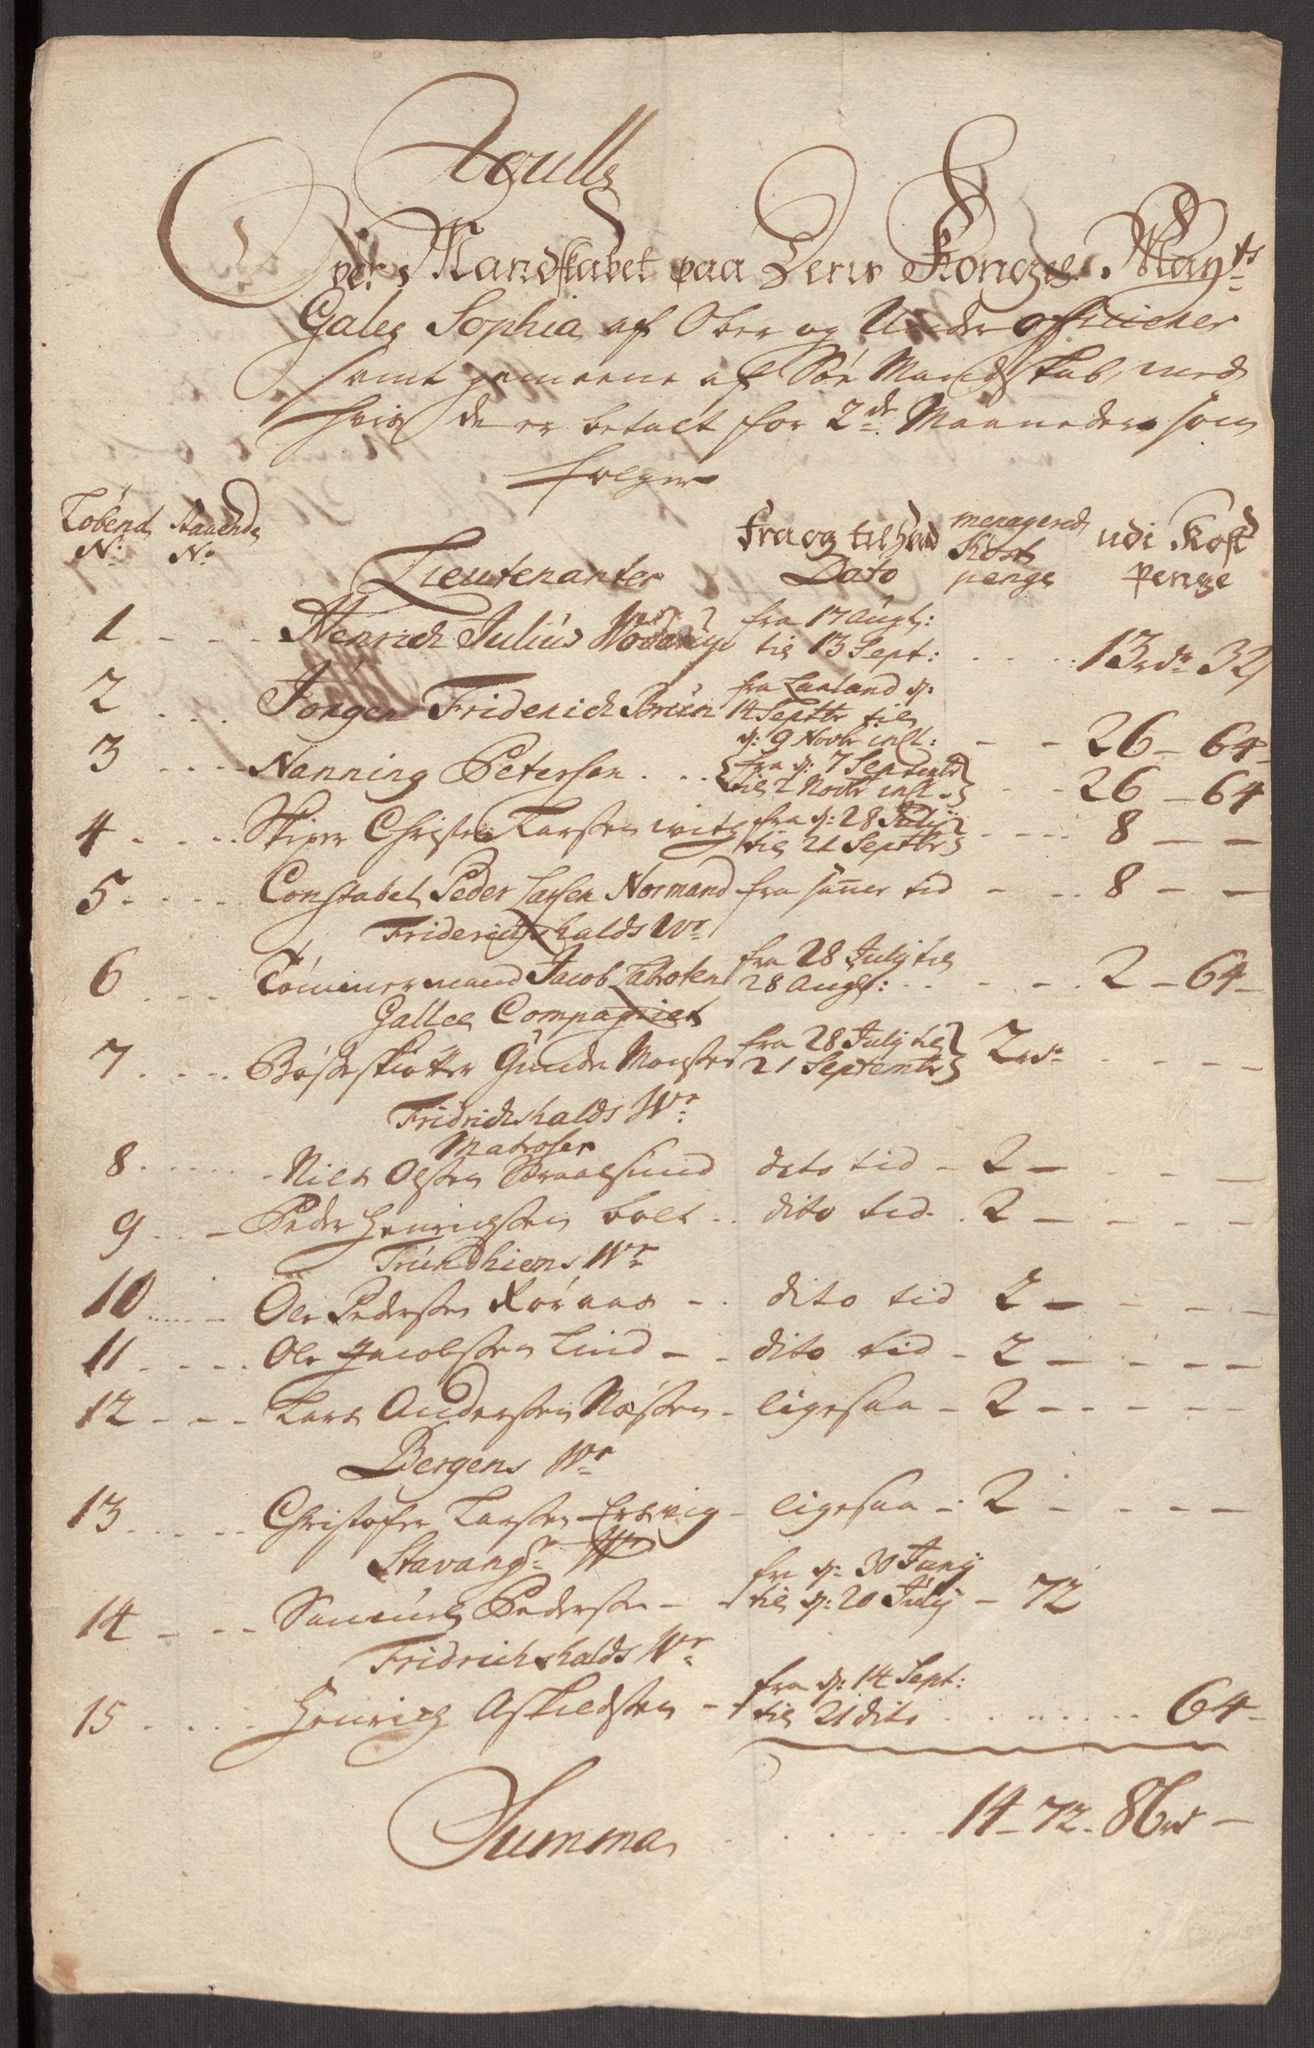 Roulle
Over Mandskabet paa Deris Kongel. Mayts
Galej Sophia af Ober og Under officierer
samt gemeene af Sòe Mandskab, med
hvis de er betalt for 2de Maaneder som
følger
Løbend Staaende fra og til hvad menagered udi Kost
No. No. Dato Kost penge penge
Lieutenanter
1 Henrich Julius fra 17 Augt: til 13 Sept: 13 rdr 32
2 Jørgen Friderich Brün fra Laaland d: 14 Septbr til d: 9 Novbr inst: 26 - 64
3 Nanning Petersen fra d: 7 Septembr til 2 Novbr inst. 26 - 64
4 Skiper Christen Larssen fra d: 28 Julij til 21 Septbr 8 - -
5 Constabel Peder Larsen Normand fra samer tid 8 - -
Friderichshalds Wr
6 Tømmermand Jacob fra 28 Julij til 28 Augt: 2 - 64 -
Gallee Compagniet
7 Bøsseskiøtter Gunde Monssen fra 28 Julij til 21 Septembr 2 rdr
Fridrichshalds Wr.
Matroser
8 Niels Olssen dito tid - 2 -
9 Peder Henrichssen bolt dito tid 2 -
Trundhiens Wr
10 Ole Pederssen Røraas dito tid 2 -
11 Ole Jacobssen Lind dito tid - 2 -
12 Lars Anderssen Næssen - ligesaa - 2 -
Bergens Wr
13 Christofer Larssen ligesaa - 2 -
Stavangr Wr
14 Samuel Pederssen fra d: 30 Junij til d: 20 Julij - 72
Fridrichshalds Wr
15 Henrich Askildssen fra d: 14 Sept: til 21 dito 64 -
Summa 14 - 72 - 86 rdr -